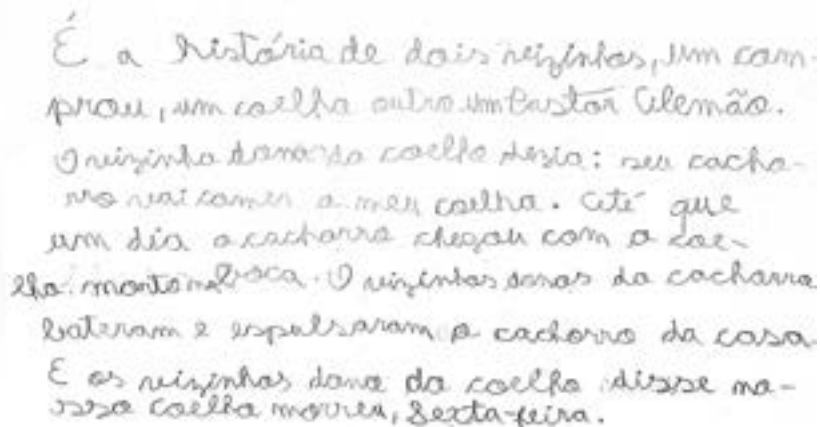 É a história de dois reizinhos, um com-
prou, um coelho outro um Pastor Alemão.
O reizinho dono do coelho desia: seu cacho-
rro vai comer o meu coelho. Até que
um dia o cachorro chegou com o coe-
lho morto na boca. O reizinhos donos do cachorro
bateram e espulsaram o cachorro da casa
E os reizinhos dono do coelho disse no-
sso coelho morreu, Sexta-feira.